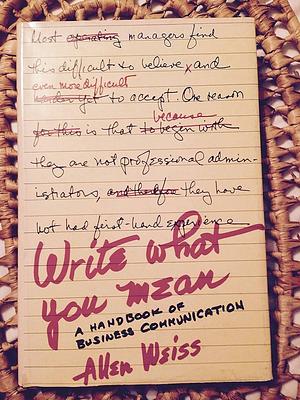 Most operating managers find
this difficult to believe, and
even more difficult
harder yet to accept. One reason
because
for this is that to begin with
they are not professional admin-
istrators, and therefore they have
not had first-hand experience
Write what
you mean
A HANDBOOK OF
BUSINESS COMMUNICATION
Allen Weiss